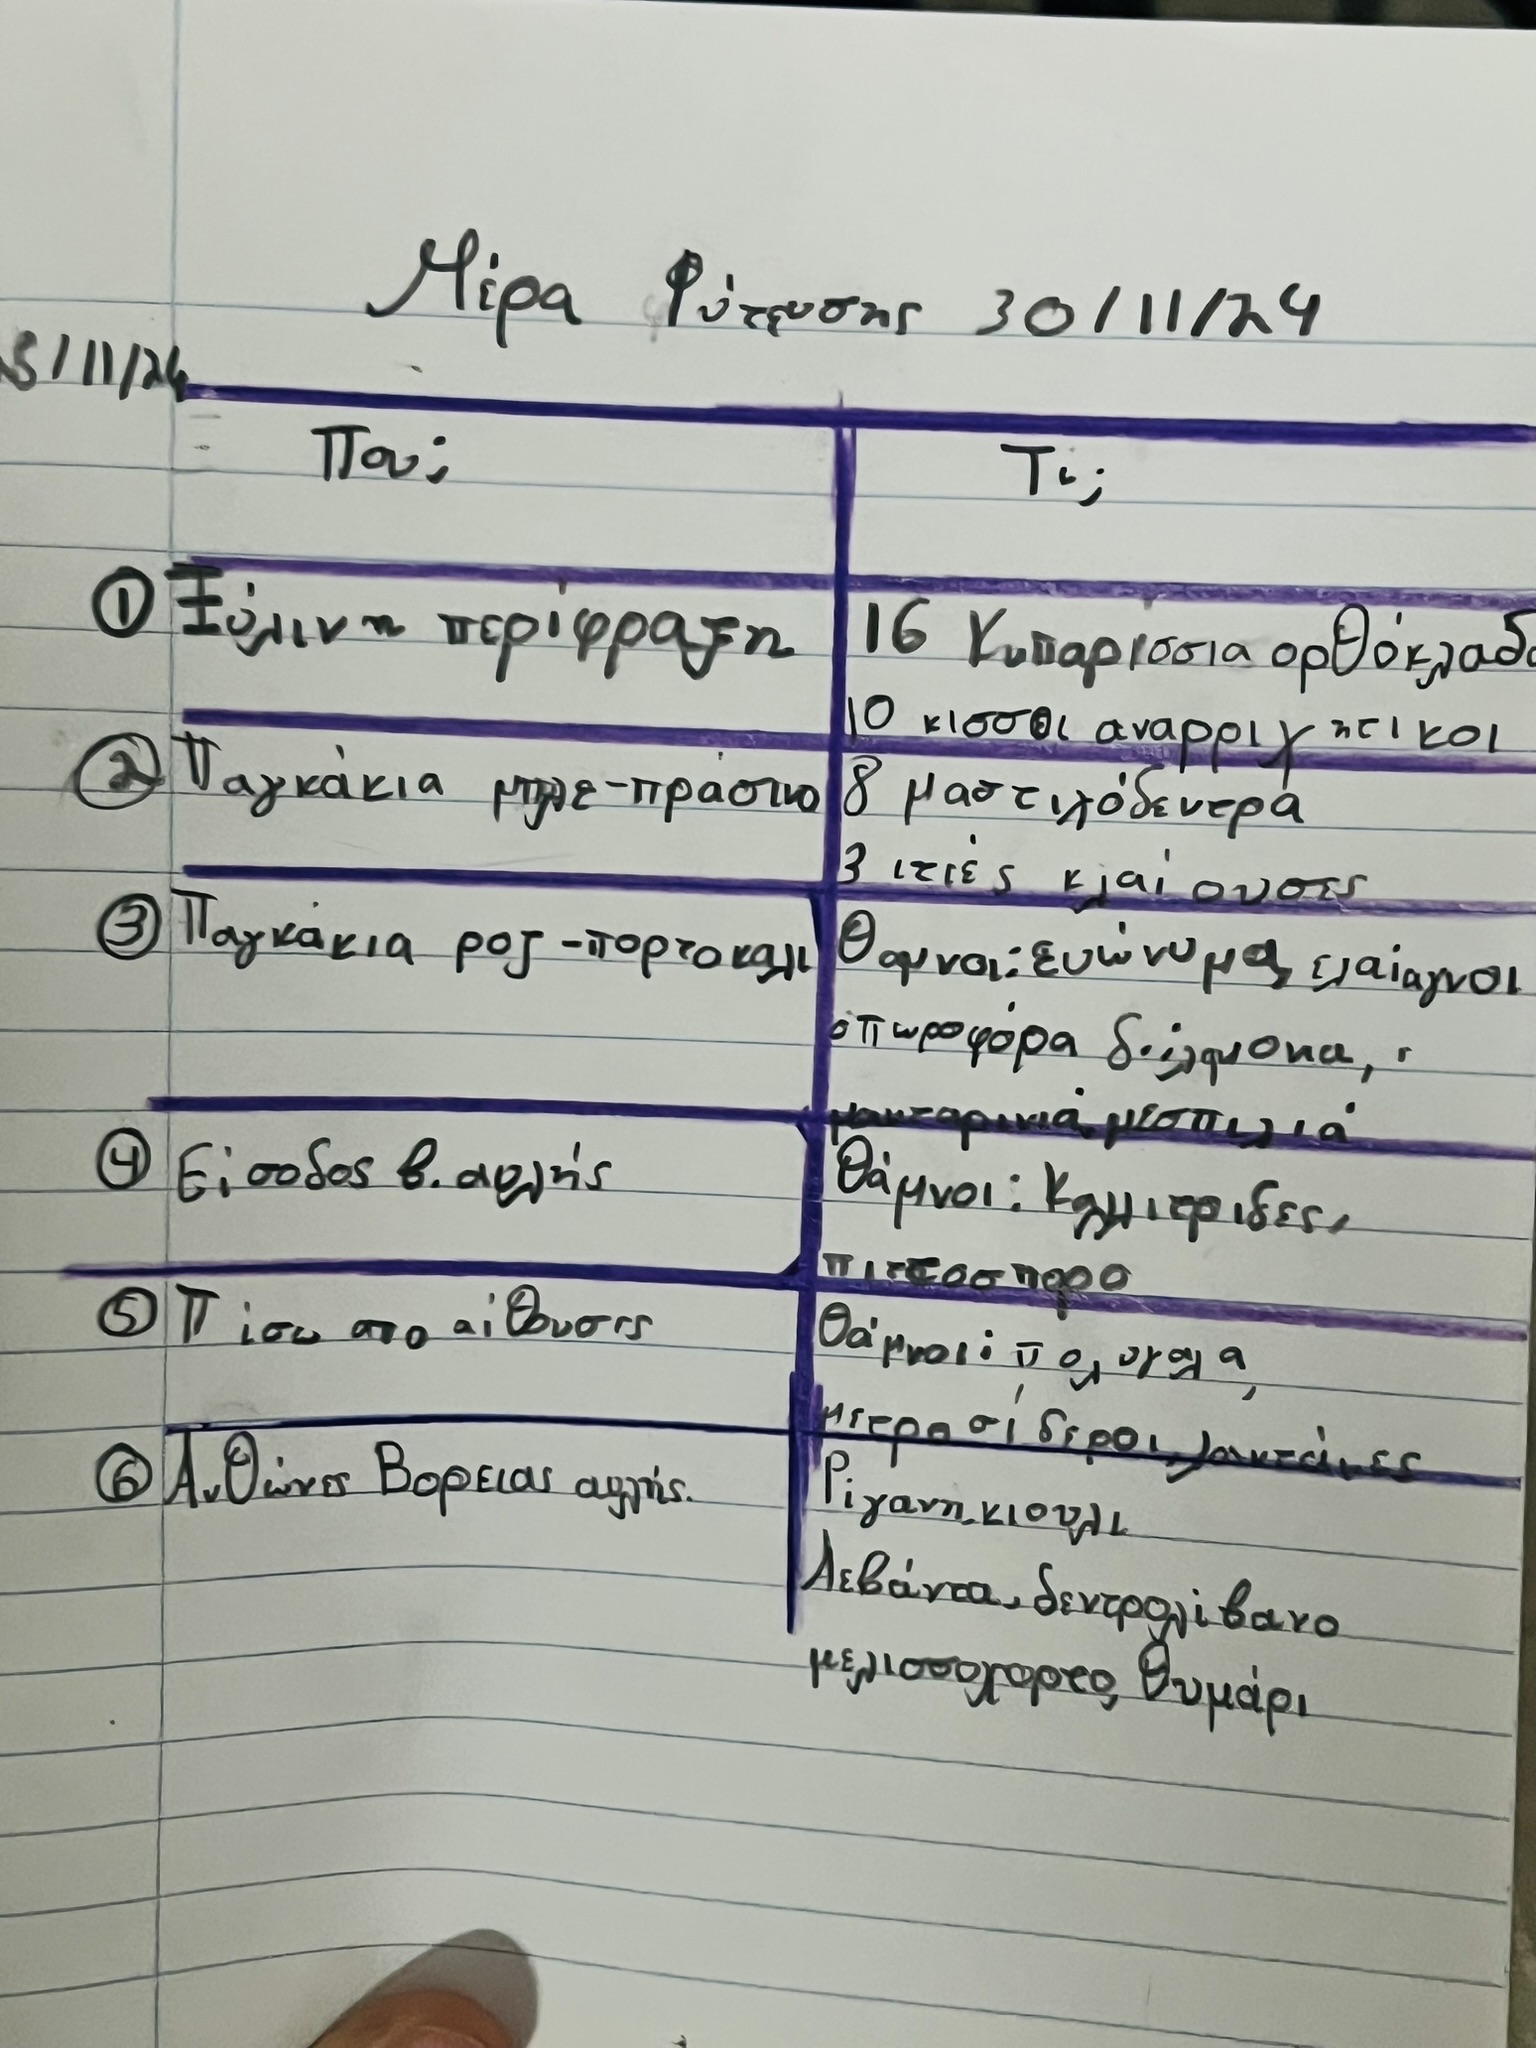 Μέρα Φύτευσης 30/11/24
/11/24
Που; Τι;
① Ξύλινη περίφραξη 16 Κυπαρίσσια ορθόκλαδ
10 κισσοι αναρριχητικοι
② Παγκάκια μπλε-πράσινο 8 μαστιχόδεντρα
3 ιτιές κλαίουσες
③ Παγκάκια ροζ-πορτοκαλι Θαμνοι: ευώνυμα, ελαίαγνοι
οπωροφόρα
μανταρινιά, μεσπιλιά
④ Είσοδος β. αυλής Θάμνοι:
πιττοσπορο
⑤ Πίσω απο αίθουσες Θάμνοι: πολυγαλα,
μετροσίδεροι, λαντάνες
⑥ Ανθώνες Βορειας αυλής. Ρίγανη, κιούλι
Λεβάντα, δεντρολίβανο
μελισσόχορτο, Θυμάρι